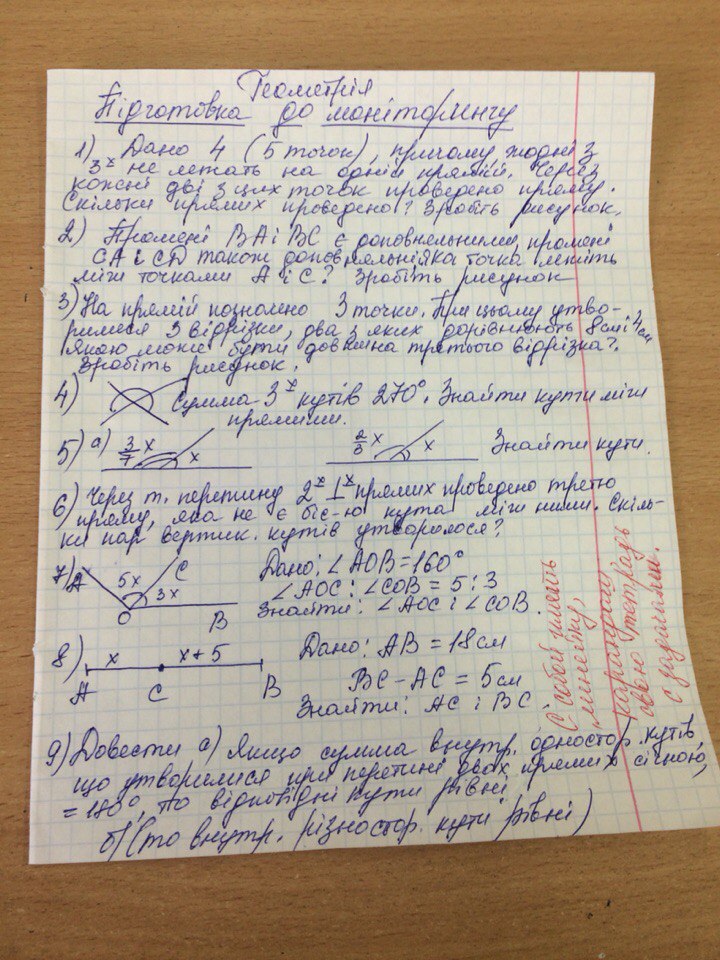 Геометрія
Підготовка до моніторингу
1) Дано 4 (5 точок), причому жодні 3
3ˣ не лежать на одній прямій. Через
кожні дві з цих точок проведено пряму.
Скільки прямих проведено? Зробіть рисунок.
2) Промені BA і BC є доповняльними, промені
CA і CD також доповняльні. Яка точка лежить
між точками A і C? Зробіть рисунок
3) На прямій позначено 3 точки. При цьому утво-
рилися 3 відрізки, два з яких дорівнюють 8см і 4см
Якою може бути довжина третього відрізка?
Зробіть рисунок.
4) Сумма 3ˣ кутів 270°. Знайти кути між
прямими.
5) а) 3/7 x x 2/3 x x Знайти кути.
6) Через т. перетину 2ˣ ⊥ˣ прямих проведено третю
пряму, яка не є біс-ю кута між ними. Скіль-
ки пар вертик. кутів утворилося?
7) A 5x C 3x O B
Дано: ∠AOB = 160°
∠AOC : ∠COB = 5 : 3
Знайти: ∠AOC і ∠COB.
8) x x + 5 A C B
Дано: AB = 18 см
BC - AC = 5 см
Знайти: AC і BC.
9) Довести а) Якщо сумма внутр. одностор. кутів,
що утворилися при перетині двох прямих січною,
= 180°, то відповідні кути рівні
б) (то внутр. різностор. кути рівні)
С собой иметь
линейку,
карандаш
свою тетрадь
с задачами.